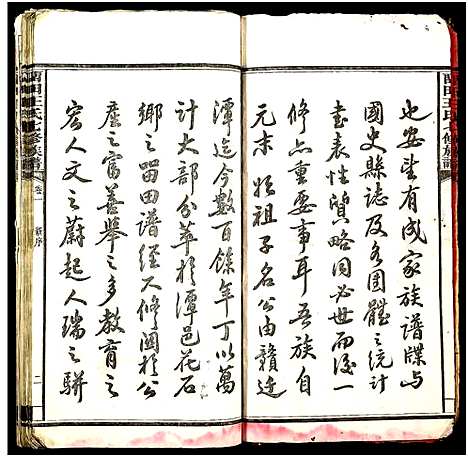 也安望有成家族譜牒与
國史縣誌及各團體之統計
書表性質略同必世而後一
修亦重要事耳吾族自
元末始祖子名公由贛迁
潭迄今數百餘年丁以萬
計大部分萃於潭邑花石
鄉之留田譜經八修闔於公
產之富善舉之多教育之
宏人文之蔚起人瑞之駢
王氏七修族譜
卷一
二